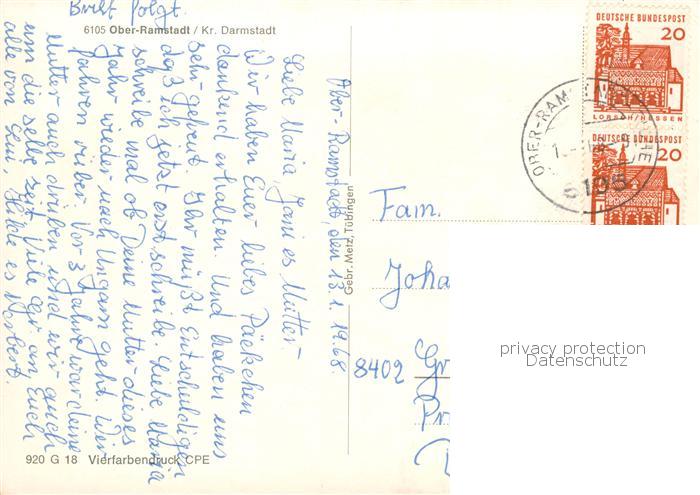 Brief folgt.
6105 Ober-Ramstadt / Kr. Darmstadt
Ober-Ramstadt den 13.1.1968.
Liebe Maria, Jani es Mutter-
Wir haben Euer liebes Päckchen
dankend erhalten. Und haben uns
sehr gefreut. Ihr müßt Entschuldigen
daß ich jetzt erst schreibe. Liebe Maria
schreibe mal ob Deine Mutter dieses
Jahr wieder nach Ungarn geht. Wir
fahren rüber. Vor 3 Jahre war deine
Mutter auch drüben und wir auch
um die selbe zeit. Viele Gr. an Euch
alle von Hilde es Norbert.
920 G 18 Vierfarbendruck CPE
Gebr. Metz, Tübingen
DEUTSCHE BUNDESPOST
20
LORSCH/HESSEN
DEUTSCHE BUNDESPOST
20
OBER-RAM
6105
Fam.
Joha
8402 Gr
Pr
privacy protection
Datenschutz